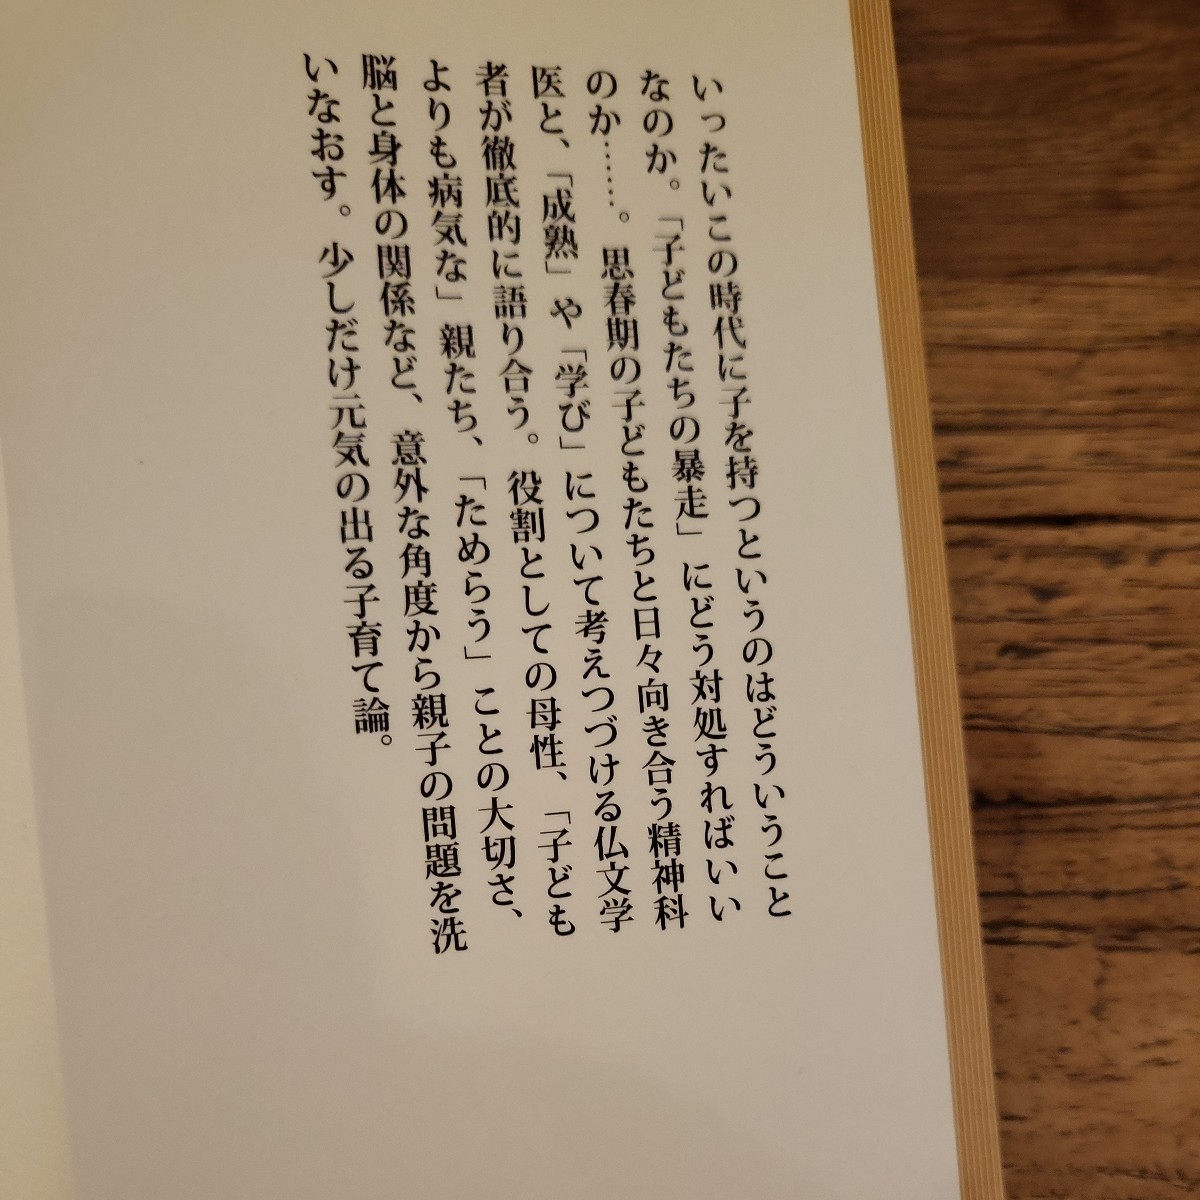 いったいこの時代に子を持つというのはどういうこと
なのか。「子どもたちの暴走」にどう対処すればいい
のか……。思春期の子どもたちと日々向き合う精神科
医と、「成熟」や「学び」について考えつづける仏文学
者が徹底的に語り合う。役割としての母性、「子ども
よりも病気な」親たち、「ためらう」ことの大切さ、
脳と身体の関係など、意外な角度から親子の問題を洗
いなおす。少しだけ元気の出る子育て論。